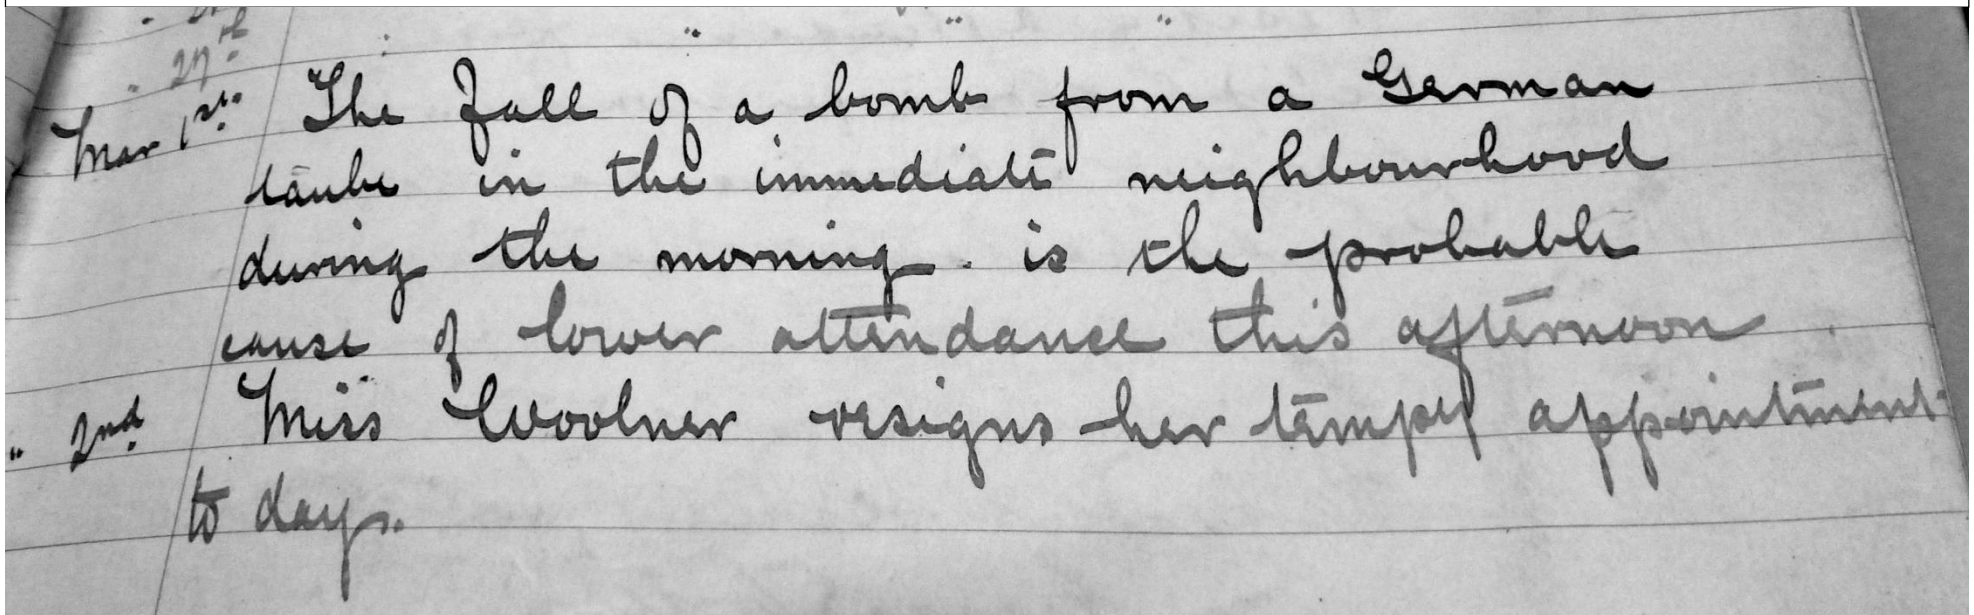 " 27th
Mar 1st. The fall of a bomb from a German
taube in the immediate neighbourhood
during the morning. is the probable
cause of lower attendance this afternoon.
" 2nd. Miss Woolner resigns her tempy appointment
to day.